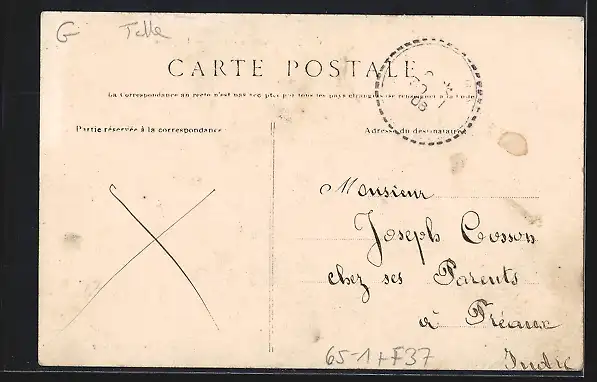 G Talle
CARTE POSTALE
La Correspondance au recto n'est pas acceptée par tous les pays étrangers. Se renseigner à la Poste
Partie réservée à la correspondance
Adresse du destinataire
08
Monsieur
Joseph Cosson
chez ses Parents
à Préaux
Indre
65-1 + F37